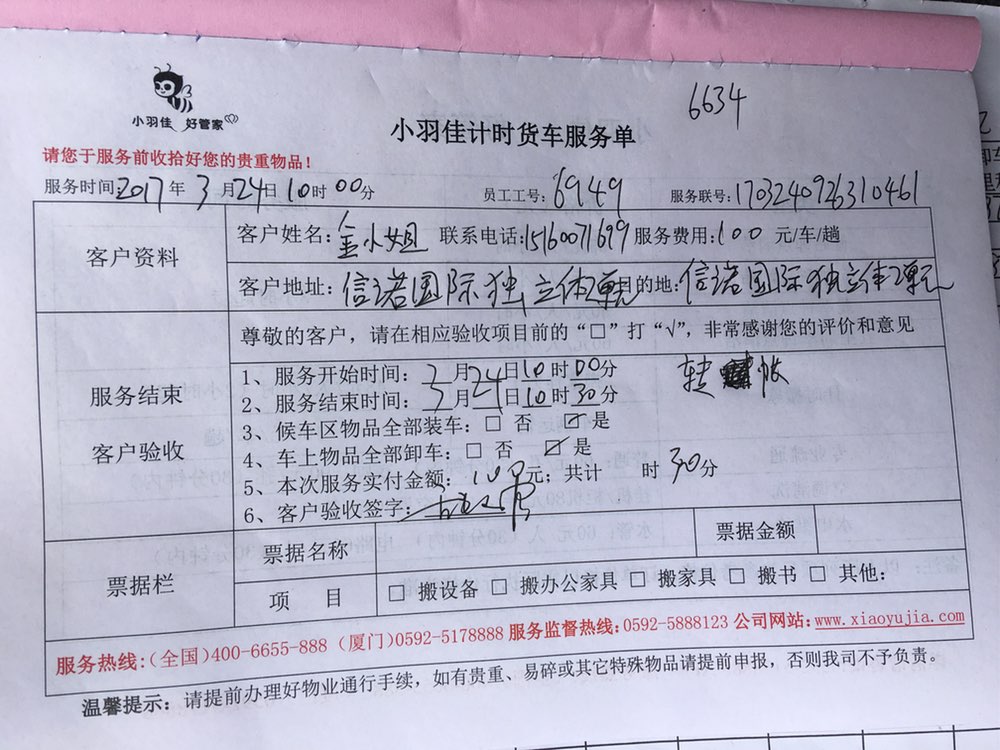 6634
小羽佳 好管家
小羽佳计时货车服务单
请您于服务前收拾好您的贵重物品！
服务时间：2017年3月24日10时00分 员工工号：6949 服务联号：1703240926310461
客户资料
客户姓名：金小姐 联系电话：15160071699 服务费用：100 元/车/趟
客户地址：信诺国际独立体 目的地：信诺国际独立体
服务结束
客户验收
尊敬的客户，请在相应验收项目前的“□”打“√”，非常感谢您的评价和意见
1、服务开始时间：3月24日10时00分 转帐
2、服务结束时间：3月24日10时30分
3、候车区物品全部装车：□ 否 ☑ 是
4、车上物品全部卸车：□ 否 ☑ 是
5、本次服务实付金额：100元；共计 时30分
6、客户验收签字：
票据栏
票据名称 票据金额
项 目 □ 搬设备 □ 搬办公家具 □ 搬家具 □ 搬书 □ 其他：
服务热线：（全国）400-6655-888（厦门）0592-5178888 服务监督热线：0592-5888123 公司网站：www.xiaoyujia.com
温馨提示：请提前办理好物业通行手续，如有贵重、易碎或其它特殊物品请提前申报，否则我司不予负责。